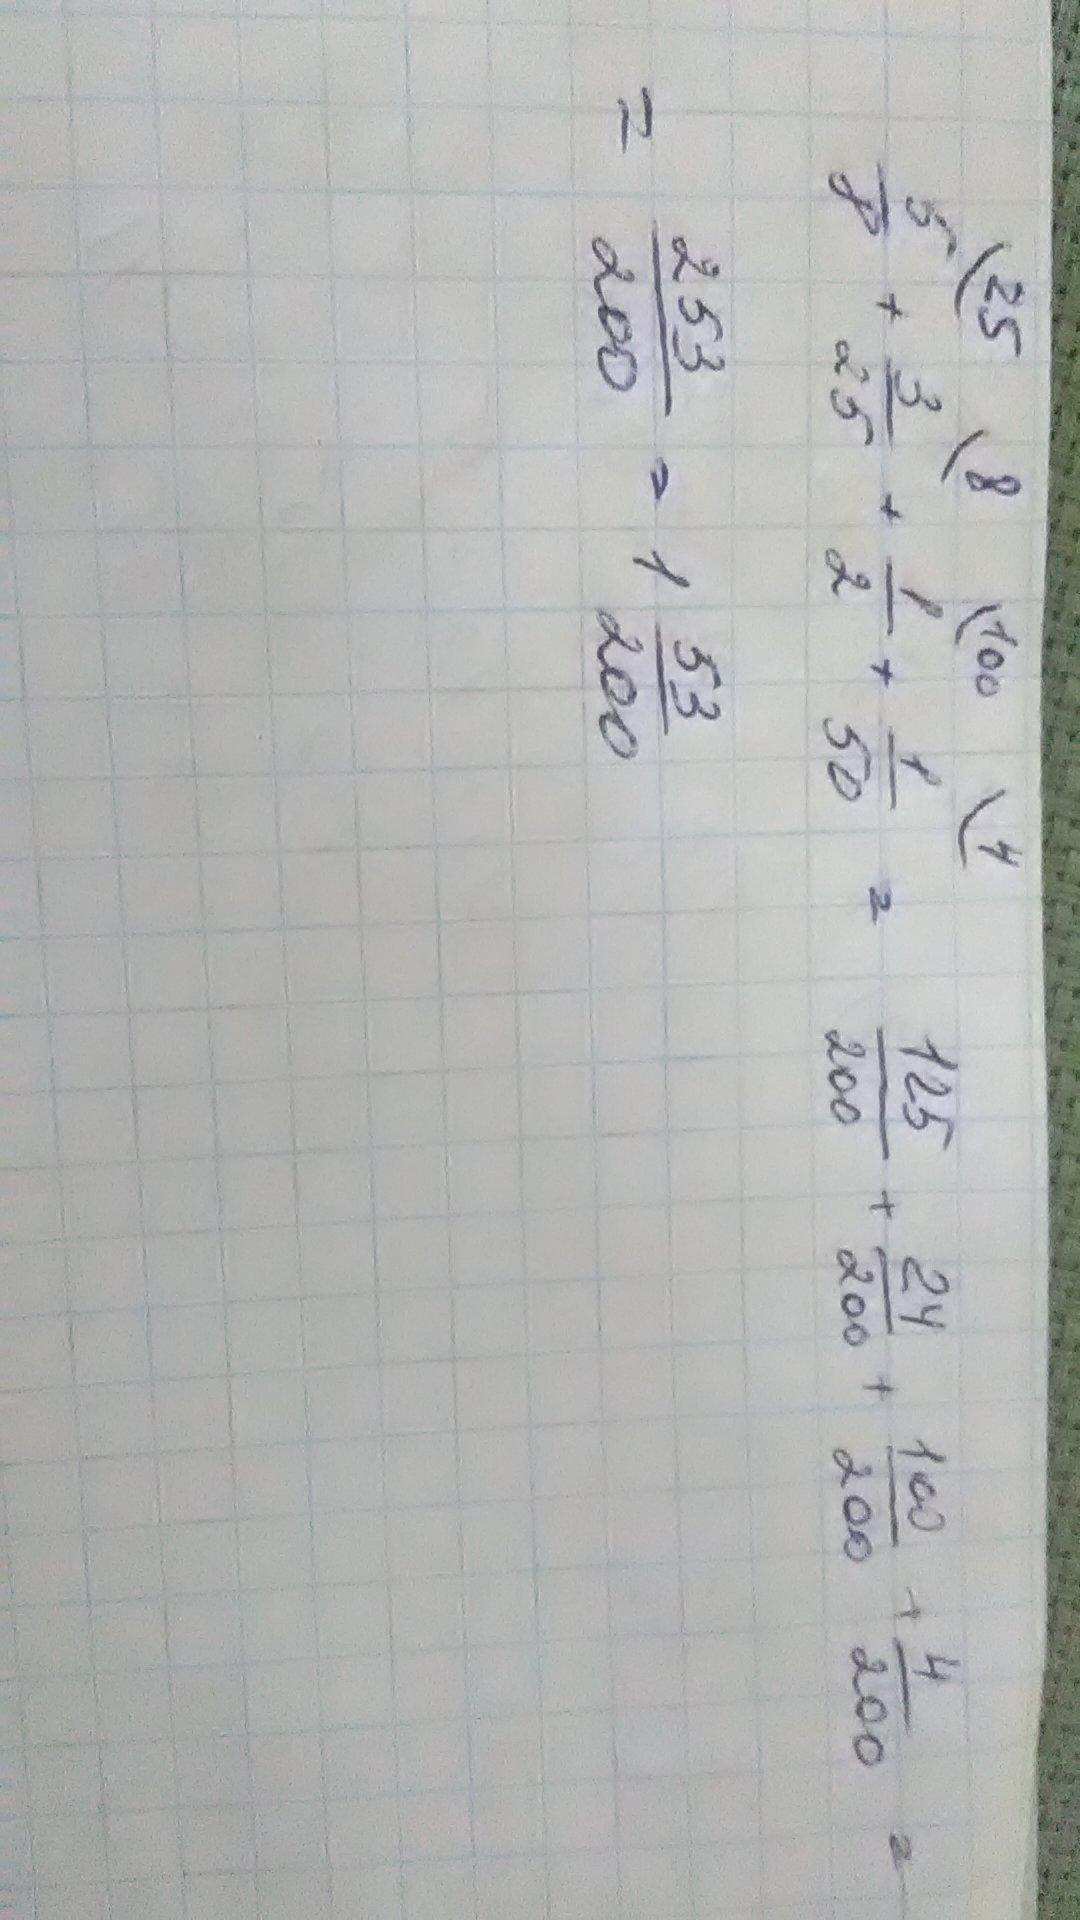 5/8 (25 + 3/25 (8 + 1/2 (100 + 1/50 (4 = 125/200 + 24/200 + 100/200 + 4/200 =
= 253/200 = 1 53/200